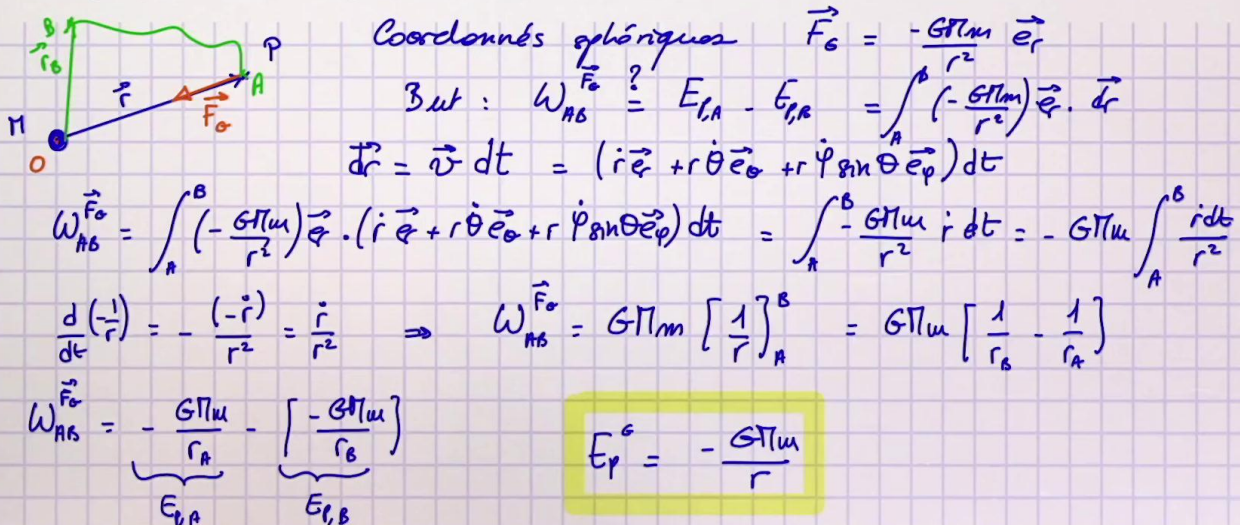 Coordonnés sphériques $\vec{F_G} = \frac{-GMm}{r^2} \vec{e_r}$
B $\vec{r_B}$ P A $\vec{r}$ $\vec{F_G}$ M O
But : $W_{AB}^{\vec{F_G}} \stackrel{?}{=} E_{P,A} - E_{P,B} = \int_A^B \left(-\frac{GMm}{r^2}\right) \vec{e_r} \cdot \vec{dr}$
$\vec{dr} = \vec{v} \, dt = (\dot{r} \vec{e_r} + r \dot{\theta} \vec{e_\theta} + r \dot{\varphi} \sin\theta \vec{e_\varphi}) dt$
$W_{AB}^{\vec{F_G}} = \int_A^B \left(-\frac{GMm}{r^2}\right) \vec{e_r} \cdot (\dot{r} \vec{e_r} + r \dot{\theta} \vec{e_\theta} + r \dot{\varphi} \sin\theta \vec{e_\varphi}) dt = \int_A^B -\frac{GMm}{r^2} \dot{r} \, dt = -GMm \int_A^B \frac{\dot{r} dt}{r^2}$
$\frac{d}{dt}\left(-\frac{1}{r}\right) = -\frac{(-\dot{r})}{r^2} = \frac{\dot{r}}{r^2} \Rightarrow W_{AB}^{\vec{F_G}} = GMm \left[\frac{1}{r}\right]_A^B = GMm \left[\frac{1}{r_B} - \frac{1}{r_A}\right]$
$W_{AB}^{\vec{F_G}} = \underbrace{-\frac{GMm}{r_A}}_{E_{P,A}} - \underbrace{\left[\frac{-GMm}{r_B}\right]}_{E_{P,B}}$
$E_P^G = -\frac{GMm}{r}$